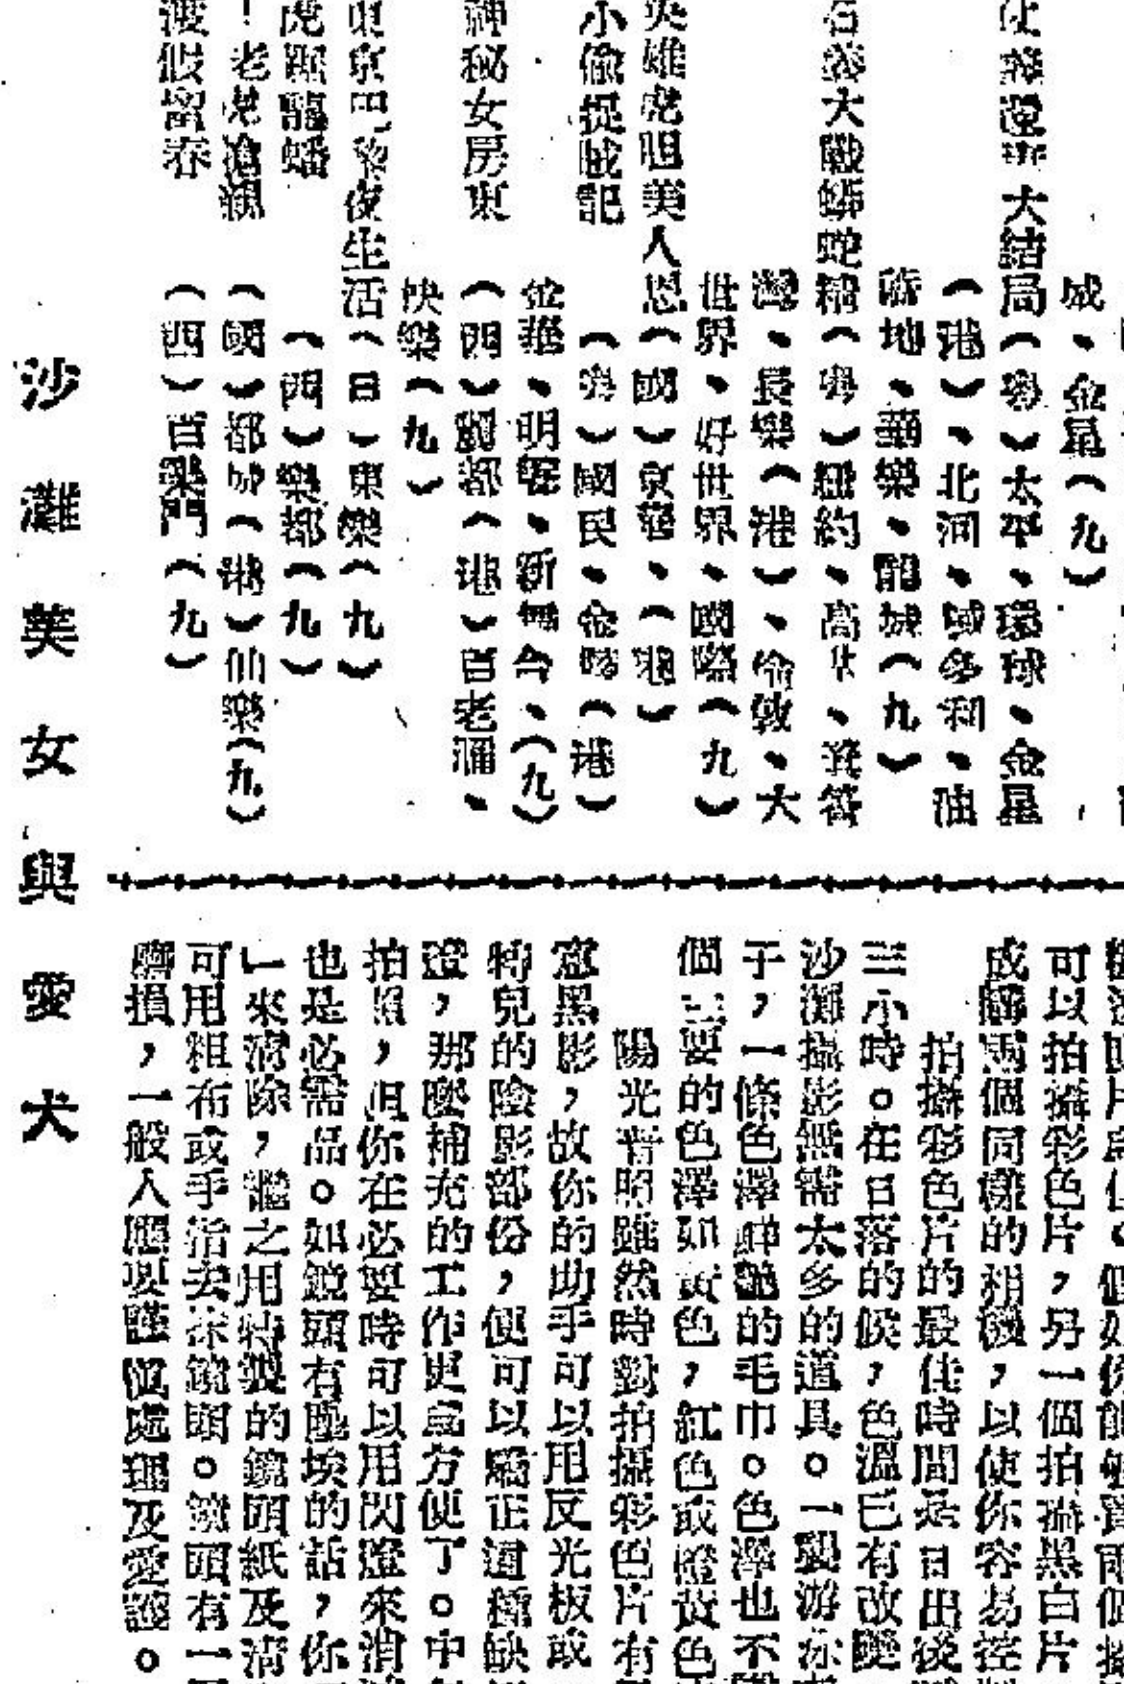 城、金星(九)
大結局(粵)太平、環球、金星
(港)、北河、域多利、油
蔴地、華樂、龍城(九)
石義大戰蟒蛇精(粵)紐約、高士、箕簹
灣、長樂(港)、倫敦、大
世界、好世界、國際(九)
英雄虎胆美人恩(國)京華、(港)
小偷捉賊記(粵)國民、金陵(港)
金華、明聲、新舞台、(九)
神秘女房東(西)麗都(港)百老滙、
快樂(九)
東京巴黎夜生活(日)東樂(九)
虎踞龍蟠(西)樂都(九)
!老虎搶親(國)都城(港)仙樂(九)
渡假留春(四)百樂門(九)
可以拍攝彩色片,另一個拍攝黑白片
成購兩個同樣的相機,以使你容易控制
拍攝彩色片的最佳時間是日出後
三小時。在日落的候,色溫已有改變
沙灘攝影無需太多的道具。一襲游泳
于,一條色澤鮮艷的毛巾。色澤也不
個主要的色澤如黃色,紅色或橙黃色
陽光普照雖然時對拍攝彩色片有
窓黑影,故你的助手可以用反光板或
特兒的陰影部份,便可以矯正這種缺
燈,那麼補充的工作更爲方便了。中
拍照,但你在必要時可以用閃燈來消
也是必需品。如鏡頭有塵埃的話,你
」來淸除,繼之用特製的鏡頭紙及淸
可用粗布或手指去抹鏡頭。鏡頭有一
磨損,一般人應要謹愼處理及愛護。
沙灘美女與愛犬